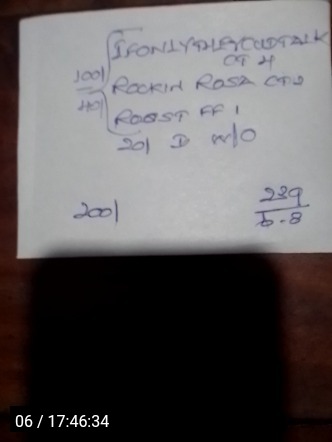 IFONLYTHEYCUDTALK
CT 4
100/
40/
ROCKIN ROSA CT 2
ROOST FF 1
20/ D W/O
200/
229
6-8
06 / 17:46:34